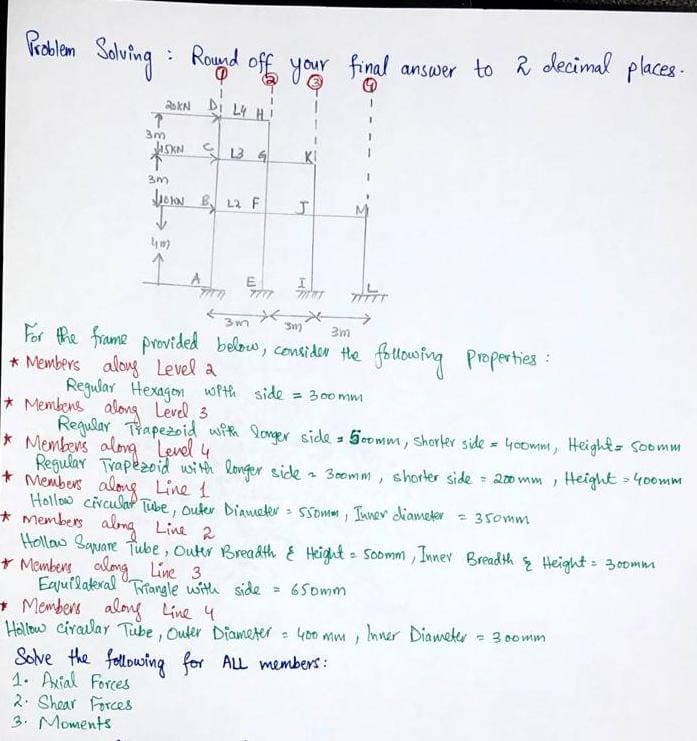 Problem Solving : Round off your final answer to 2 decimal places.
1 2 3 4
20KN D L4 H
3m
15KN C L3 G K
3m
10KN B L2 F J M
4m
A E I L
3m 3m 3m
For the frame provided below, consider the following properties :
* Members along Level 2
Regular Hexagon with side = 300mm
* Members along Level 3
Regular Trapezoid with longer side = 500mm, shorter side = 400mm, Height = 500mm
* Members along Level 4
Regular Trapezoid with longer side = 300mm, shorter side = 200mm, Height = 400mm
* Members along Line 1
Hollow circular Tube, Outer Diameter = 550mm, Inner diameter = 350mm
* Members along Line 2
Hollow Square Tube, Outer Breadth & Height = 500mm, Inner Breadth & Height = 300mm
* Members along Line 3
Equilateral Triangle with side = 650mm
* Members along Line 4
Hollow circular Tube, Outer Diameter = 400 mm, Inner Diameter = 300mm
Solve the following for ALL members:
1. Axial Forces
2. Shear Forces
3. Moments